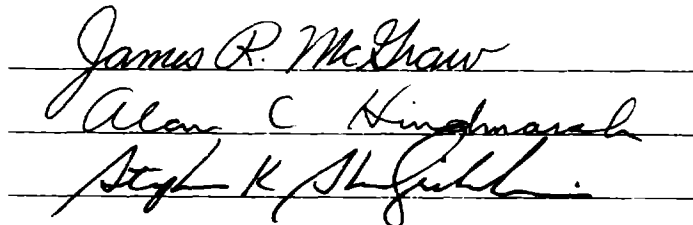 James R. McGraw
Alan C Hindmarsh
Stephen K